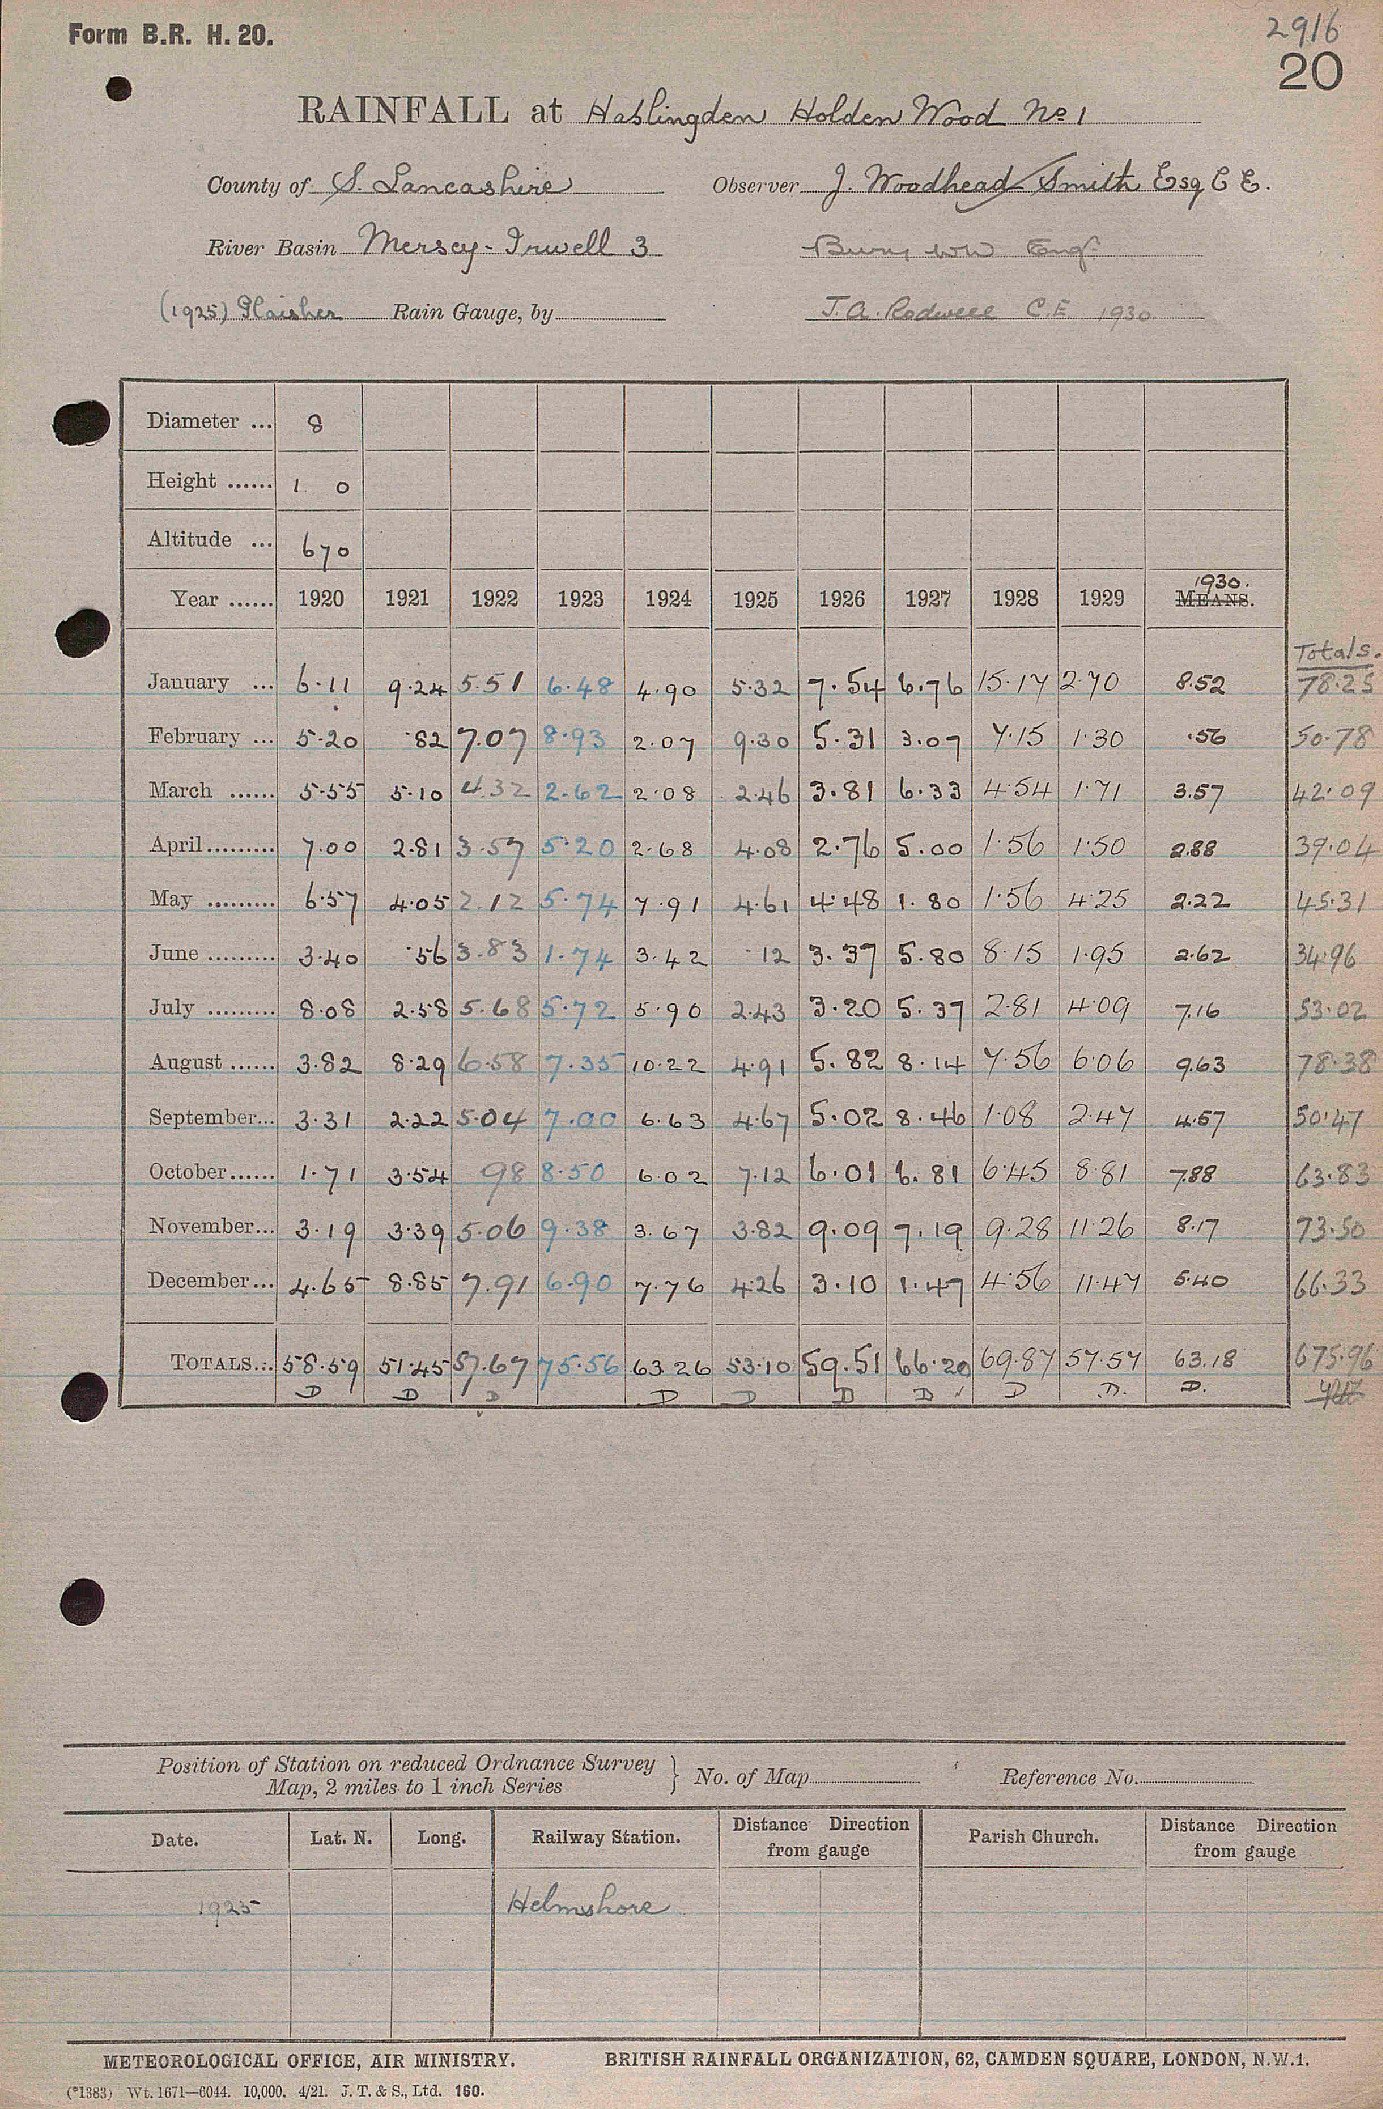 Form B.R. H. 20.
2916
20
RAINFALL at Haslingden Holden Wood No 1
County of S. Lancashire Observer J. Woodhead Smith Esq C E.
River Basin Mersey - Irwell 3 Bury WW Engr
(1925) Glaisher Rain Gauge, by J. A. Rodwell C.E 1930
Diameter ... 8
Height ...... 1 0
Altitude ... 670
1930.
Year ...... 1920 1921 1922 1923 1924 1925 1926 1927 1928 1929 MEANS.
Totals.
January ... 6.11 9.24 5.51 6.48 4.90 5.32 7.54 6.76 15.17 2.70 8.52 78.25
February ... 5.20 .82 7.07 8.93 2.07 9.30 5.31 3.07 7.15 1.30 .56 50.78
March ...... 5.55 5.10 4.32 2.62 2.08 2.46 3.81 6.33 4.54 1.71 3.57 42.09
April......... 7.00 2.81 3.57 5.20 2.68 4.08 2.76 5.00 1.56 1.50 2.88 39.04
May ......... 6.57 4.05 2.12 5.74 7.91 4.61 4.48 1.80 1.56 4.25 2.22 45.31
June ......... 3.40 .56 3.83 1.74 3.42 .12 3.37 5.80 8.15 1.95 2.62 34.96
July ......... 8.08 2.58 5.68 5.72 5.90 2.43 3.20 5.37 2.81 4.09 7.16 53.02
August ...... 3.82 8.29 6.58 7.35 10.22 4.91 5.82 8.14 7.56 6.06 9.63 78.38
September... 3.31 2.22 5.04 7.00 6.63 4.67 5.02 8.46 1.08 2.47 4.57 50.47
October...... 1.71 3.54 98 8.50 6.02 7.12 6.01 6.81 6.45 8.81 7.88 63.83
November... 3.19 3.39 5.06 9.38 3.67 3.82 9.09 7.19 9.28 11.26 8.17 73.50
December... 4.65 8.85 7.91 6.90 7.76 4.26 3.10 1.47 4.56 11.47 5.40 66.33
TOTALS... 58.59 51.45 57.67 75.56 63.26 53.10 59.51 66.20 69.87 57.57 63.18 675.96
D D D D D D D D D. D.
Position of Station on reduced Ordnance Survey
Map, 2 miles to 1 inch Series } No. of Map Reference No.
Date. Lat. N. Long. Railway Station. Distance Direction from gauge Parish Church. Distance Direction from gauge
1925 Helmshore
METEOROLOGICAL OFFICE, AIR MINISTRY. BRITISH RAINFALL ORGANIZATION, 62, CAMDEN SQUARE, LONDON, N.W.1.
(*1383) Wt. 1671—6044. 10,000. 4/21. J. T. & S., Ltd. 160.